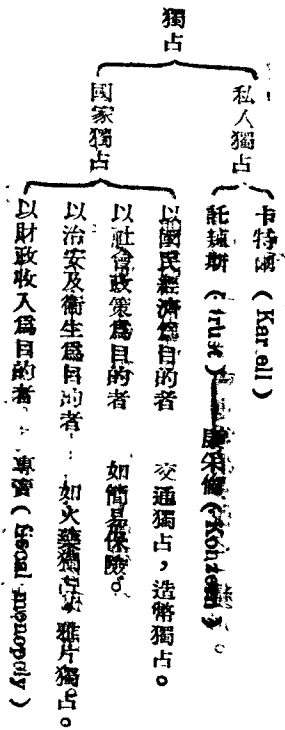 獨占
私人獨占
卡特爾（Kar ell）
託辣斯（trust）
國家獨占
以國民經濟爲目的者 交通獨占，造幣獨占。
以社會政策爲目的者 如簡易保險。
以治安及衞生爲目的者：如火藥獨占，雅片獨占。
以財政收入爲目的者：專賣（fiscal menopoly）